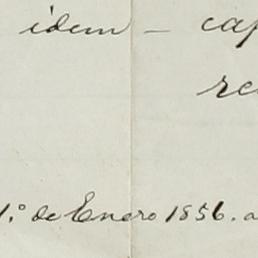 idem — cap
re
1.º de Enero 1856. a